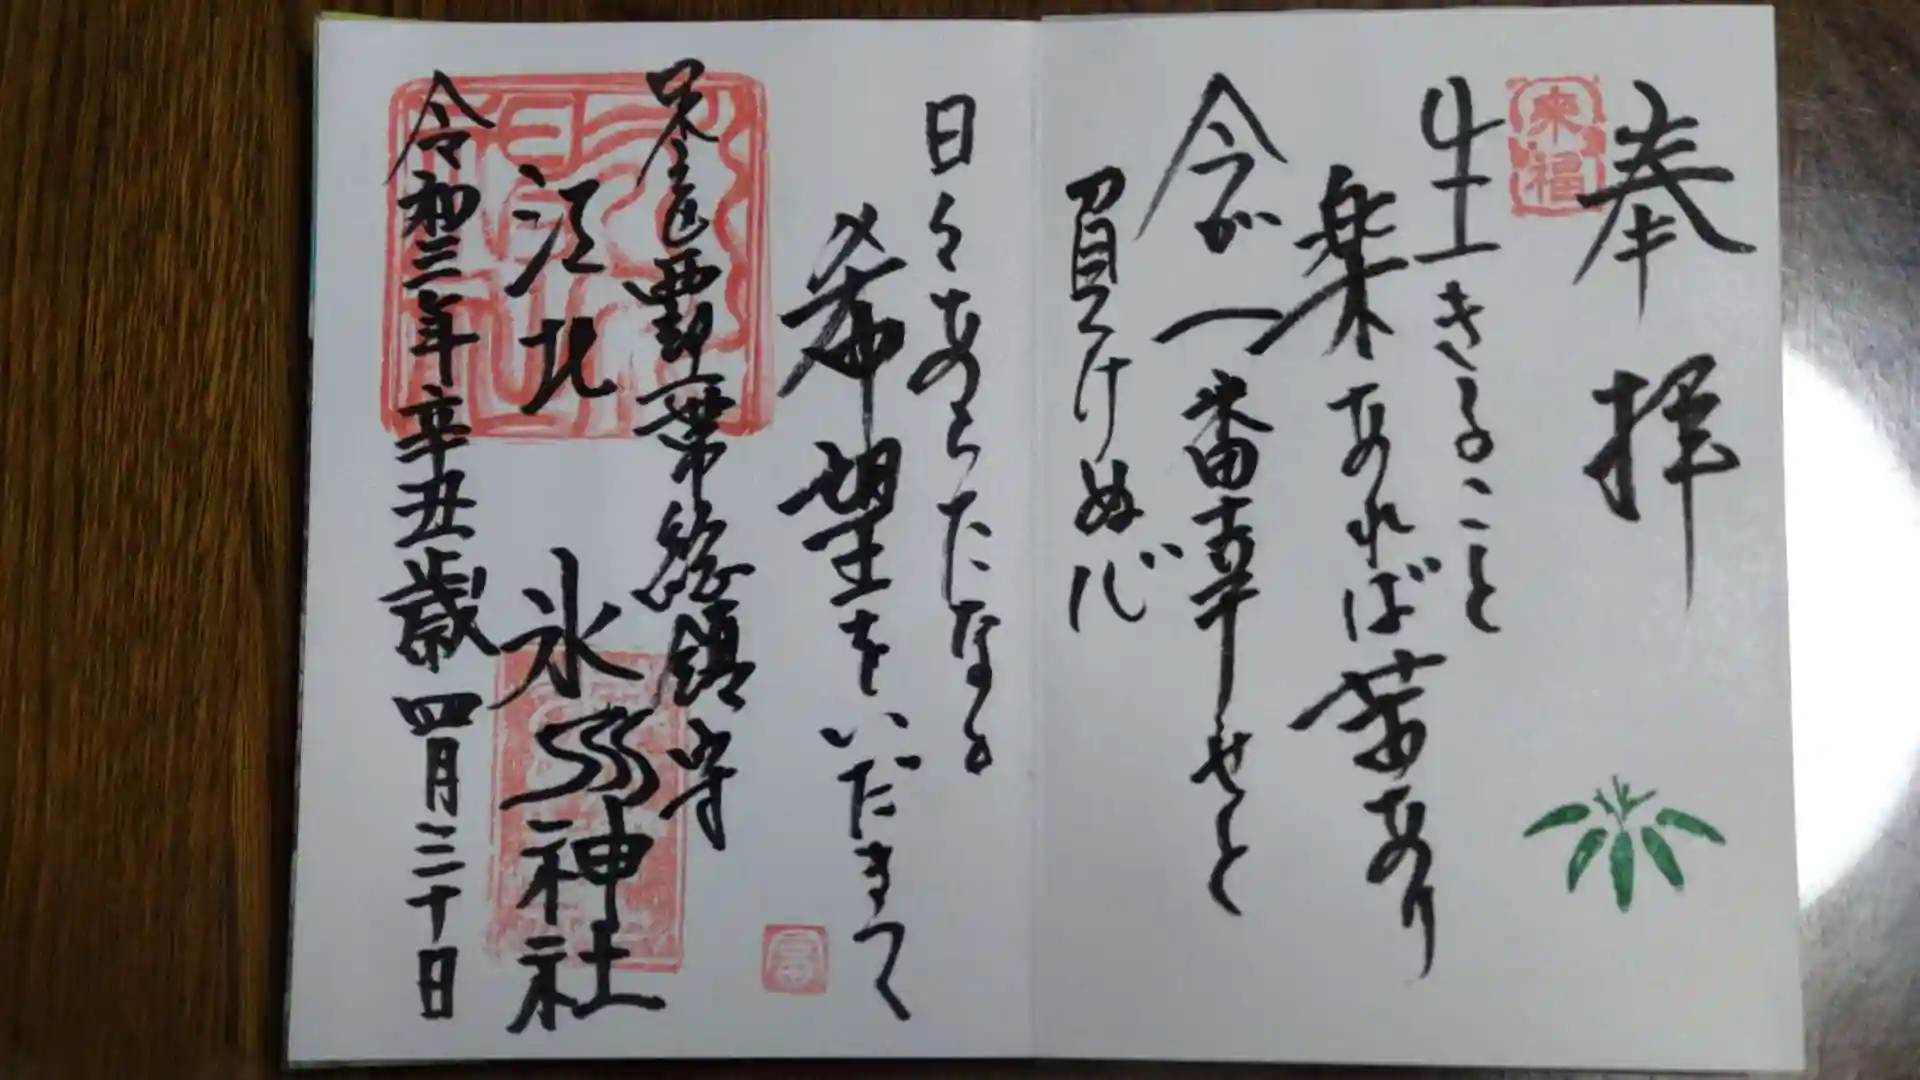 奉拝
来福
生きること
楽あれば苦あり
今が一番幸せと
負けぬ心
日々あらたなる
希望をいだきて
足立区西部一帯総鎮守
江北
氷川神社
令和三年辛丑歳四月三十日